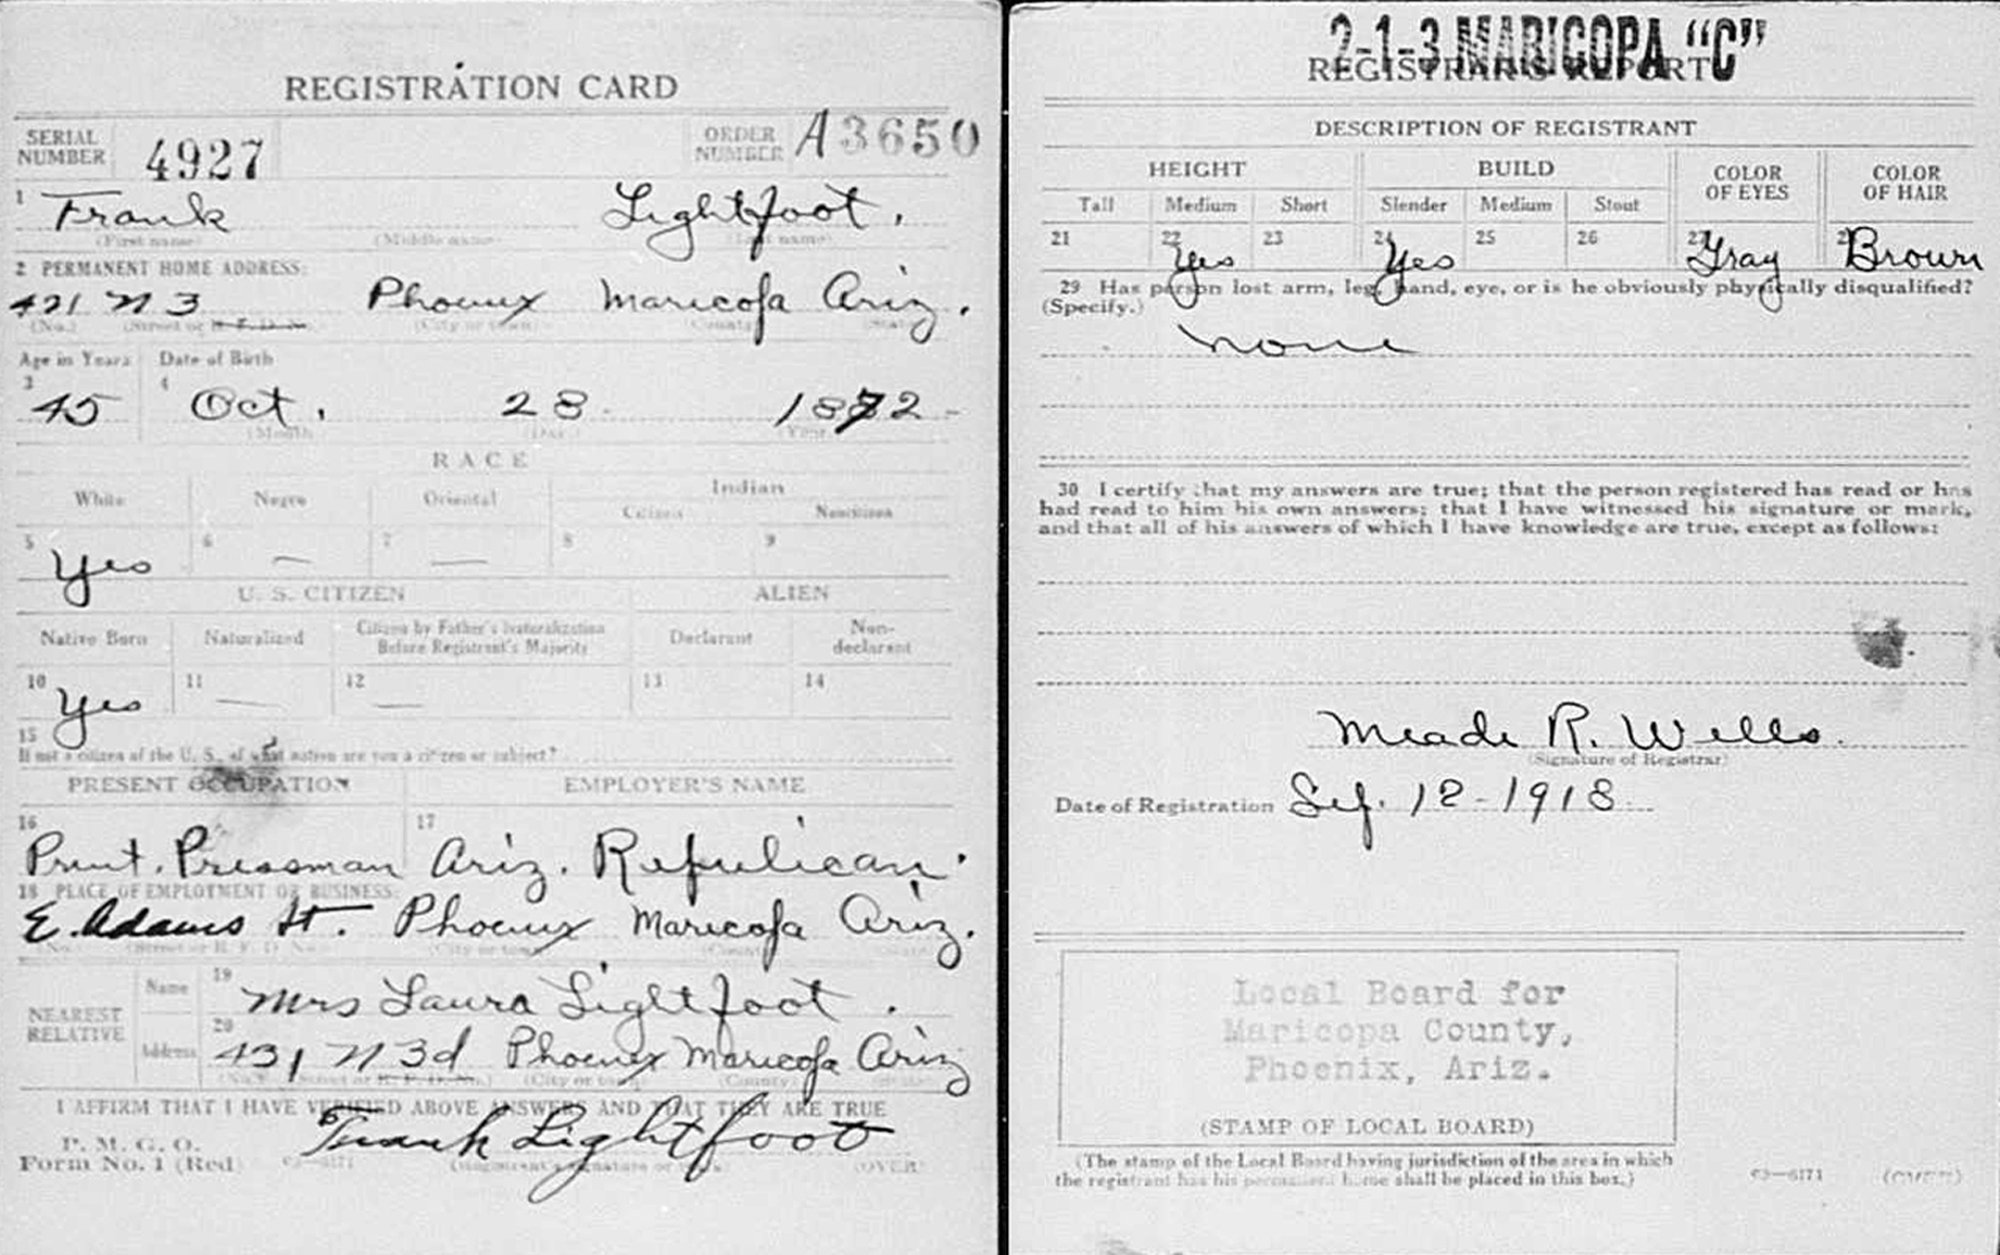 REGISTRATION CARD
SERIAL NUMBER 4927 ORDER NUMBER A3650
1 Frank Lightfoot.
(First name) (Middle name) (Last name)
2 PERMANENT HOME ADDRESS:
421 N 3 Phoenix Maricopa Ariz.
(No.) (Street or R. F. D. No.) (City or town) (County) (State)
Age in Years Date of Birth
3 45 4 Oct. 28 1872
(Month) (Day) (Year)
RACE
White Negro Oriental Indian
Citizen Noncitizen
5 Yes 6 — 7 — 8 9
U. S. CITIZEN ALIEN
Native Born Naturalized Citizen by Father's Naturalization Before Registrant's Majority Declarant Non-declarant
10 Yes 11 — 12 — 13 14
15
If not a citizen of the U. S., of what nation are you a citizen or subject?
PRESENT OCCUPATION EMPLOYER'S NAME
16 Print. Pressman 17 Ariz. Republican.
18 PLACE OF EMPLOYMENT OR BUSINESS:
E. Adams St. Phoenix Maricopa Ariz.
(No.) (Street or R. F. D. No.) (City or town) (County) (State)
NEAREST RELATIVE Name 19 Mrs Laura Lightfoot.
Address 20 431 N 3d Phoenix Maricopa Ariz
(No.) (Street or R. F. D. No.) (City or town) (County) (State)
I AFFIRM THAT I HAVE VERIFIED ABOVE ANSWERS AND THAT THEY ARE TRUE
P. M. G. O.
Form No. 1 (Red) 03—6171 Frank Lightfoot
(Registrant's signature or mark) (OVER)
2-1-3 MARICOPA "C"
REGISTRAR'S REPORT
DESCRIPTION OF REGISTRANT
HEIGHT BUILD COLOR OF EYES COLOR OF HAIR
Tall Medium Short Slender Medium Stout
21 22 Yes 23 24 Yes 25 26 27 Gray 28 Brown
29 Has person lost arm, leg, hand, eye, or is he obviously physically disqualified?
(Specify.)
none
30 I certify that my answers are true; that the person registered has read or has
had read to him his own answers; that I have witnessed his signature or mark,
and that all of his answers of which I have knowledge are true, except as follows:
Meade R. Wells.
(Signature of Registrar)
Date of Registration Sep. 12-1918
Local Board for
Maricopa County,
Phoenix, Ariz.
(STAMP OF LOCAL BOARD)
(The stamp of the Local Board having jurisdiction of the area in which
the registrant has his permanent home shall be placed in this box.)
03—6171 (OVER)